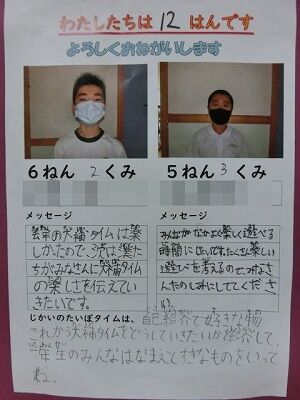 わたしたちは12はんです
よろしくおねがいします
6ねん2くみ
5ねん3くみ
メッセージ
去年の笑補タイムは楽
しかったので、次は僕た
ちがみなさんに笑補タイム
の楽しさを伝えてい
きたいです。
メッセージ
みんながなかよく楽しく遊べる
時間にしたいです。たくさん楽しい
遊びを考えるので、みなさ
んたのしみにしてくださ
い。
じかいのたいぽタイムは、自己紹介で好きな物
これから笑補タイムをどうしていきたいか紹介して、
年生のみんなはなまえとすきなものをいって
ね。